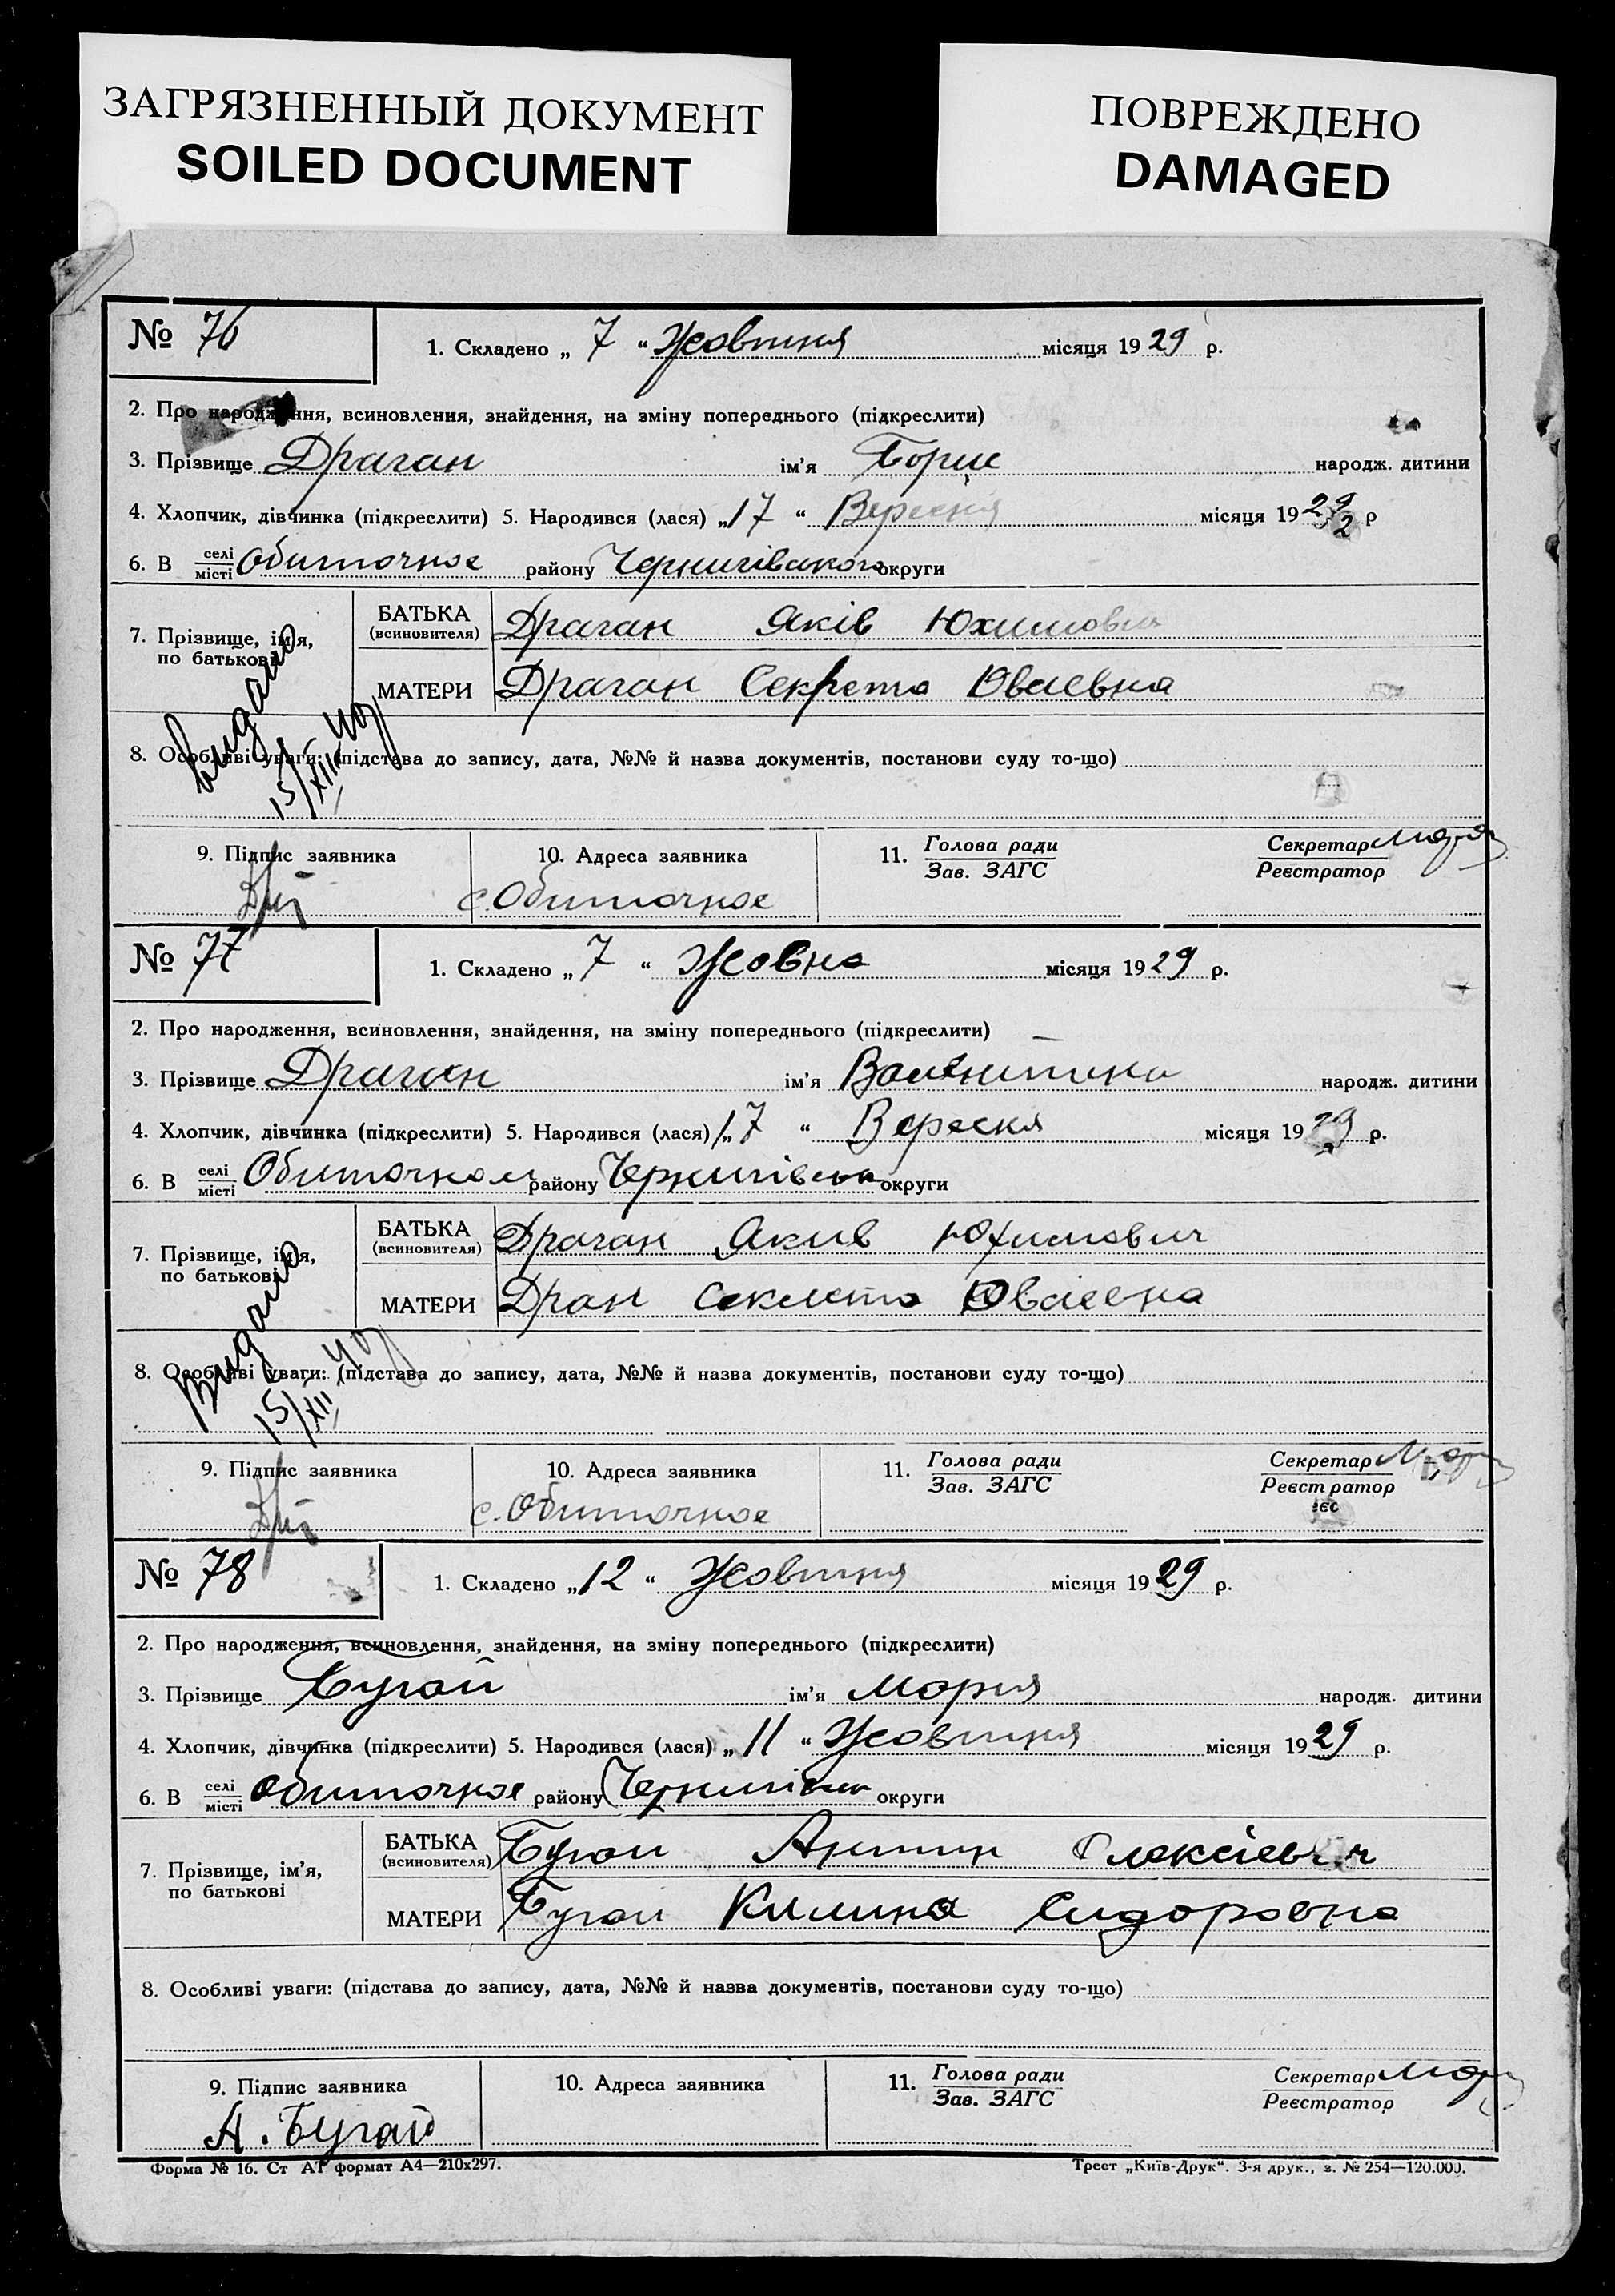 ЗАГРЯЗНЕННЫЙ ДОКУМЕНТ
SOILED DOCUMENT
ПОВРЕЖДЕНО
DAMAGED
№ 76
1. Складено „ 7 “ Жовтня місяця 1929 р.
2. Про народження, всиновлення, знайдення, на зміну попереднього (підкреслити)
3. Прізвище Драган ім'я Борис народж. дитини
4. Хлопчик, дівчинка (підкреслити) 5. Народився (лася) „17 “ Вересня місяця 1929 р
6. В селі/місті Обиточное району Чернигівського округи
7. Прізвище, ім'я, по батькові
БАТЬКА (всиновителя) Драган Яків Юхимович
МАТЕРИ Драган Секрета Овсієвна
Видано 15/XII 40
8. Особливі уваги: (підстава до запису, дата, №№ й назва документів, постанови суду то-що)
9. Підпис заявника
10. Адреса заявника
11. Голова ради
Зав. ЗАГС
Секретар
Реєстратор
с. Обиточное
№ 77
1. Складено „ 7 “ Жовня місяця 1929 р.
2. Про народження, всиновлення, знайдення, на зміну попереднього (підкреслити)
3. Прізвище Драган ім'я народж. дитини
4. Хлопчик, дівчинка (підкреслити) 5. Народився (лася) „17 “ Вересня місяця 1929 р.
6. В селі/місті Обиточном району округи
7. Прізвище, ім'я, по батькові
БАТЬКА (всиновителя) Драган Якив Юхимович
МАТЕРИ Дран Секлета
Видано 15/XII 40
8. Особливі уваги: (підстава до запису, дата, №№ й назва документів, постанови суду то-що)
9. Підпис заявника
10. Адреса заявника
11. Голова ради
Зав. ЗАГС
Секретар
Реєстратор
с. Обиточное
№ 78
1. Складено „12 “ Жовтня місяця 1929 р.
2. Про народження, всиновлення, знайдення, на зміну попереднього (підкреслити)
3. Прізвище Бугай ім'я Мария народж. дитини
4. Хлопчик, дівчинка (підкреслити) 5. Народився (лася) „ 11 “ Жовтня місяця 1929 р.
6. В селі/місті Обиточное району округи
7. Прізвище, ім'я, по батькові
БАТЬКА (всиновителя) Бугаи Антин Олексієвич
МАТЕРИ Бугаи Килина Сидоровна
8. Особливі уваги: (підстава до запису, дата, №№ й назва документів, постанови суду то-що)
9. Підпис заявника
10. Адреса заявника
11. Голова ради
Зав. ЗАГС
Секретар
Реєстратор
А. Бугай
Форма № 16. Ст АТ формат А4—210х297.
Трест „Київ-Друк“. 3-я друк., з. № 254—120.000.